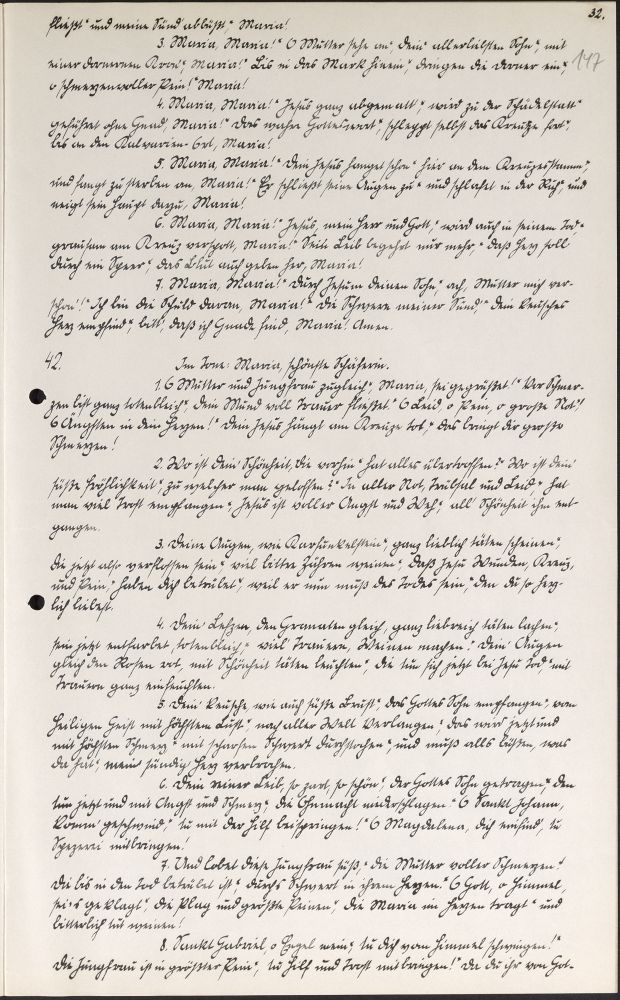 32.
fließt“ und meine Sünd' abbüßt,“ Maria!
147
3. Maria, Maria!“ O Mutter sehe an“ dein' allerliebsten Sohn“, mit
einer dornernen Kron', Maria!“ Bis in das Mark hinein“, dringen die Dörner ein“,
o schmerzenvoller Pein!“ Maria!
4. Maria, Maria!“ Jesus ganz abgematt'“, wird zu der Schädelstatt“
geführet ohne Gnad, Maria!“ Das wahre Gotteswort“, schleppt selbst das Kreuze fort“,
bis an den Kalvarien-Ort, Maria!
5. Maria, Maria!“ Dein Jesus hanget schon“ hier an dem Kreuzesstamm“,
und fangt zu sterben an, Maria!“ Er schließt seine Augen zu“ und schlafet in der Ruh“, und
neigt sein Haupt dazu, Maria!
6. Maria, Maria!“ Jesus, mein Herr und Gott,“ wird auch in seinem Tod“
grausam am Kreuz verspott, Maria!“ Sein Leib begehrt nur mehr,“ daß Herz soll
durch ein Speer“, das Blut auch geben her, Maria!
7. Maria, Maria!“ Durch Jesum deinen Sohn“ ach, Mutter mich ver-
schon'!“ Ich bin die Schuld daran, Maria!“ Die Schwere meiner Sünd'“ dein keusches
Herz empfind“, bitt', daß ich Gnade find, Maria! Amen.
42.
Im Tone: Maria, schönste Schäferin.
1. O Mutter und Jungfrau zugleich“, Maria, sei gegrüßet!“ Vor Schmer-
zen bist ganz totenbleich“, dein Mund voll Trauer fließet.“ O Leid, o Pein, o große Not“!
O Ängsten in dem Herzen!“ Dein Jesus hängt am Kreuze tot,“ das bringt die große
Schmerzen!
2. Wo ist dein' Schönheit, die vorhin“ hat alles übertroffen?“ Wo ist dein'
süße Fröhlichkeit“, zu welcher man geloffen?“ In aller Not, Trübsal und Leid“, hat
man viel Trost empfangen“, Jesus ist voller Angst und Weh“, all' Schönheit ihm ent-
gangen.
3. Deine Augen, wie Karfunkelstein“, ganz lieblich täten scheinen“,
die jetzt also verflossen sein“, viel bitter Zähren weinen“, daß Jesu Wunden, Kreuz,
und Pein“, haben dich betrübet“, weil er nun muß des Todes sein“, den du so herz-
lich liebest.
4. Dein' Lefzen, den Granaten gleich, ganz liebreich täten lachen“,
sein jetzt entfarbet, totenbleich,“ viel Trauern, Weinen machen.“ Dein' Augen
gleich den Rosen rot, mit Schönheit täten leuchten“, die tun sich jetzt bei Jesu Tod“ mit
Trauern ganz einfeuchten.
5. Dein' keusche, wie auch süße Brust“, das Gottes Sohn empfangen“, vom
heiligen Geist mit höchstem Lust“, nach aller Welt Verlangen“, das wird jetzund
mit höchsten Schmerz“ mit scharfem Schwert durchstochen“, und muß alls büßen, was
da hat“, mein sündig Herz verbrochen.
6. Dein reiner Leib, so zart, so schön“, der Gottes Sohn getragen,“ den
tun jetzt und mit Angst und Schmerz“, die Ohnmacht niederschlagen.“ O Sankt Johann,
komm' geschwind,“ tu mit der Hilf beispringen!“ O Magdalena, dich einfind', tu
Spezerei mitbringen!
7. Und labet diese Jungfrau süß,“ die Mutter voller Schmerzen“,
die bis in den Tod betrübet ist“, durchs Schwert in ihrem Herzen.“ O Gott, o Himmel,
sei's geklagt“, die Plag und größte Peinen“, die Maria im Herzen tragt“ und
bitterlich tut weinen!
8. Sankt Gabriel o Engel mein“, tu dich vom Himmel schwingen!“
Die Jungfrau ist in größter Pein“, tu Hilf und Trost mitbringen!“ Da du ihr von Got-